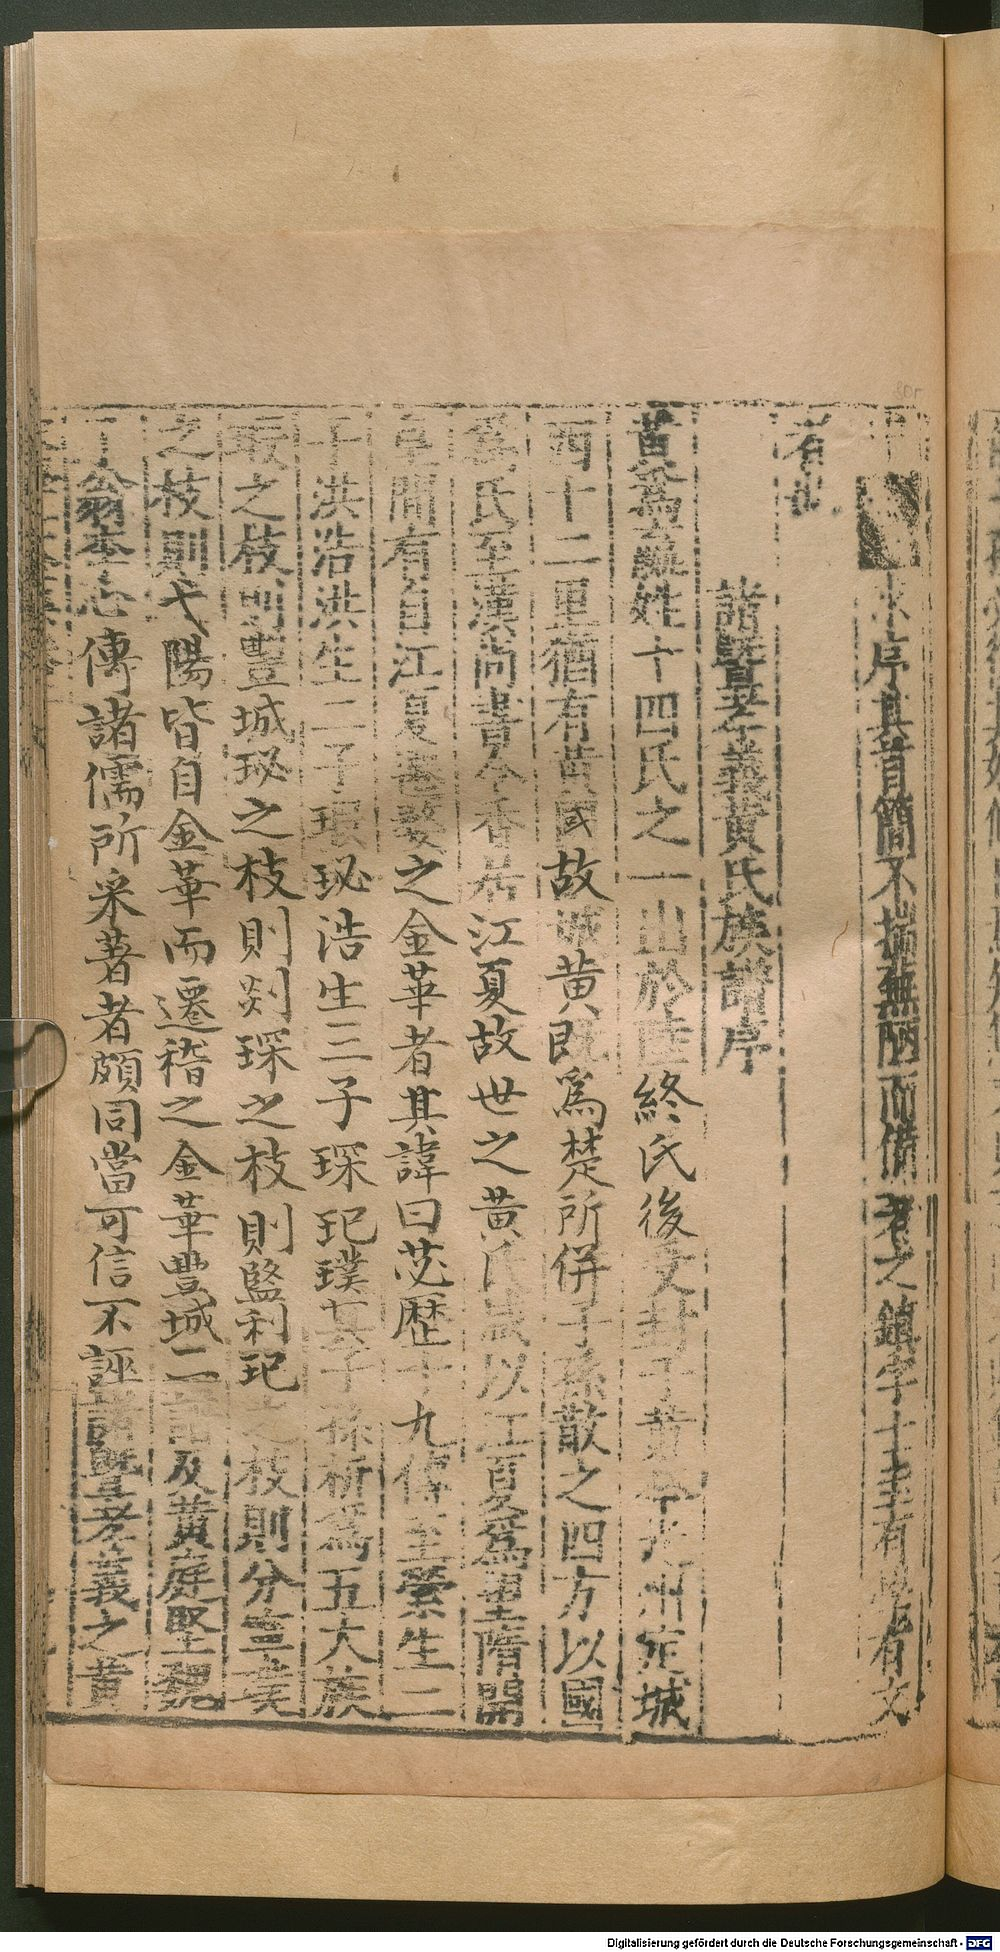 來序其首簡不揣蕪陋而備著之鎮字士圭有學有文
者也
諸暨孝義黃氏族譜序
黃爲嬴姓十四氏之一出於陸終氏後受封于黃今光州定城
西十二里猶有黃國故城黃旣爲楚所併子孫散之四方以國
爲氏至漢尚書令香居江夏故世之黃氏咸以江夏爲望隋開
皇間有自江夏遷婺之金華者其諱曰苾歷十九傳至
生二
子洪浩洪生二子珉玜浩生三子琛玘璞其子孫析爲五大族
之枝則豐城玜之枝則剡琛之枝則監利玘之枝則分寧
之枝則弋陽皆自金華而遷稽之金華豐城二譜及黃庭堅魏
了翁李心傳諸儒所采著者頗同當可信不誣諸暨孝義之黃
Digitalisierung gefördert durch die Deutsche Forschungsgemeinschaft - DFG